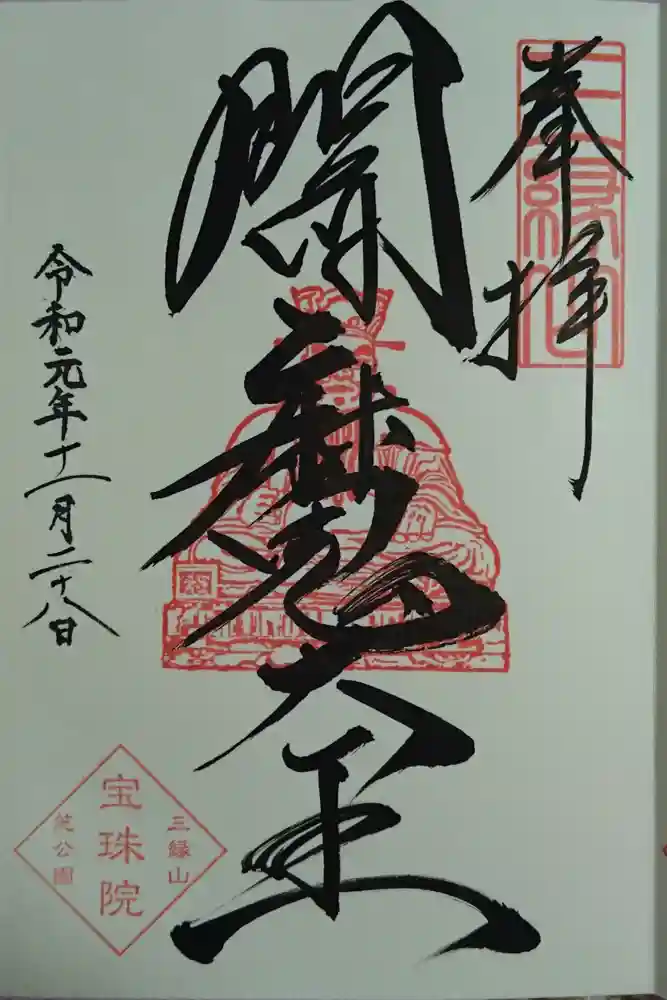 奉拝
三縁山
閻魔大王
令和元年十一月二十八日
三縁山
宝珠院
芝公園